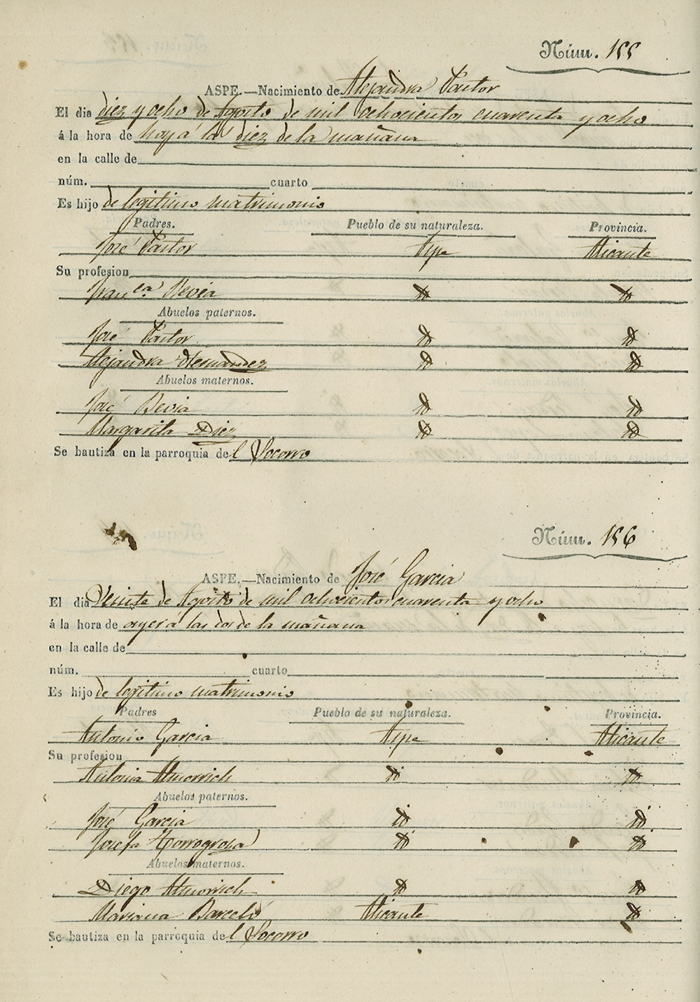 Núm. 155
ASPE.—Nacimiento de Alejandra Pastor
El dia diez y ocho de Agosto de mil ochocientos cuarenta y ocho
á la hora de hoy a las diez de la mañana
en la calle de
núm. cuarto
Es hijo de legitimo matrimonio
Padres. Pueblo de su naturaleza. Provincia.
José Pastor Aspe Alicante
Su profesion
Franca. Bevia id id
Abuelos paternos.
José Pastor id id
Alejandra Hernandez id id
Abuelos maternos.
José Bevia id id
Margarita Diez id id
Se bautiza en la parroquia del Socorro
Núm. 156
ASPE.—Nacimiento de José Garcia
El dia Veinte de Agosto de mil ochocientos cuarenta y ocho
á la hora de ayer a las dos de la mañana
en la calle de
núm. cuarto
Es hijo de legitimo matrimonio
Padres Pueblo de su naturaleza. Provincia.
Antonio Garcia Aspe Alicante
Su profesion
Antonia id id
Abuelos paternos.
José Garcia id id
Josefa Torregrosa id id
Abuelos maternos.
Diego id id
Mariana Barceló Alicante id
Se bautiza en la parroquia del Socorro